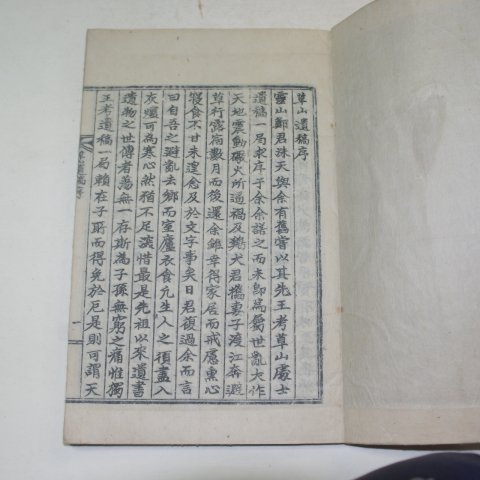 草山遺稿序
靈山鄭君珠天與余有舊嘗以其先王考草山處士
遺稿一局求序于余余諾之而未卽爲屬世亂大作
天地震動礮火所過禍及鷄犬君攜妻子渡江奔避
草行露宿數月而後還余雖幸得家居而戒懼熏心
寢食不甘未遑念及於文字事矣日君復過余而言
曰自吾之避亂去鄕而室廬衣食凡生人之須盡入
灰燼可爲寒心然猶不足深惜最是先祖以來遺書
遺物之世傳者蕩無一存斯爲子孫無窮之痛惟獨
王考遺稿一局賴在子所而得免於厄是則可謂天
草山遺稿序
一